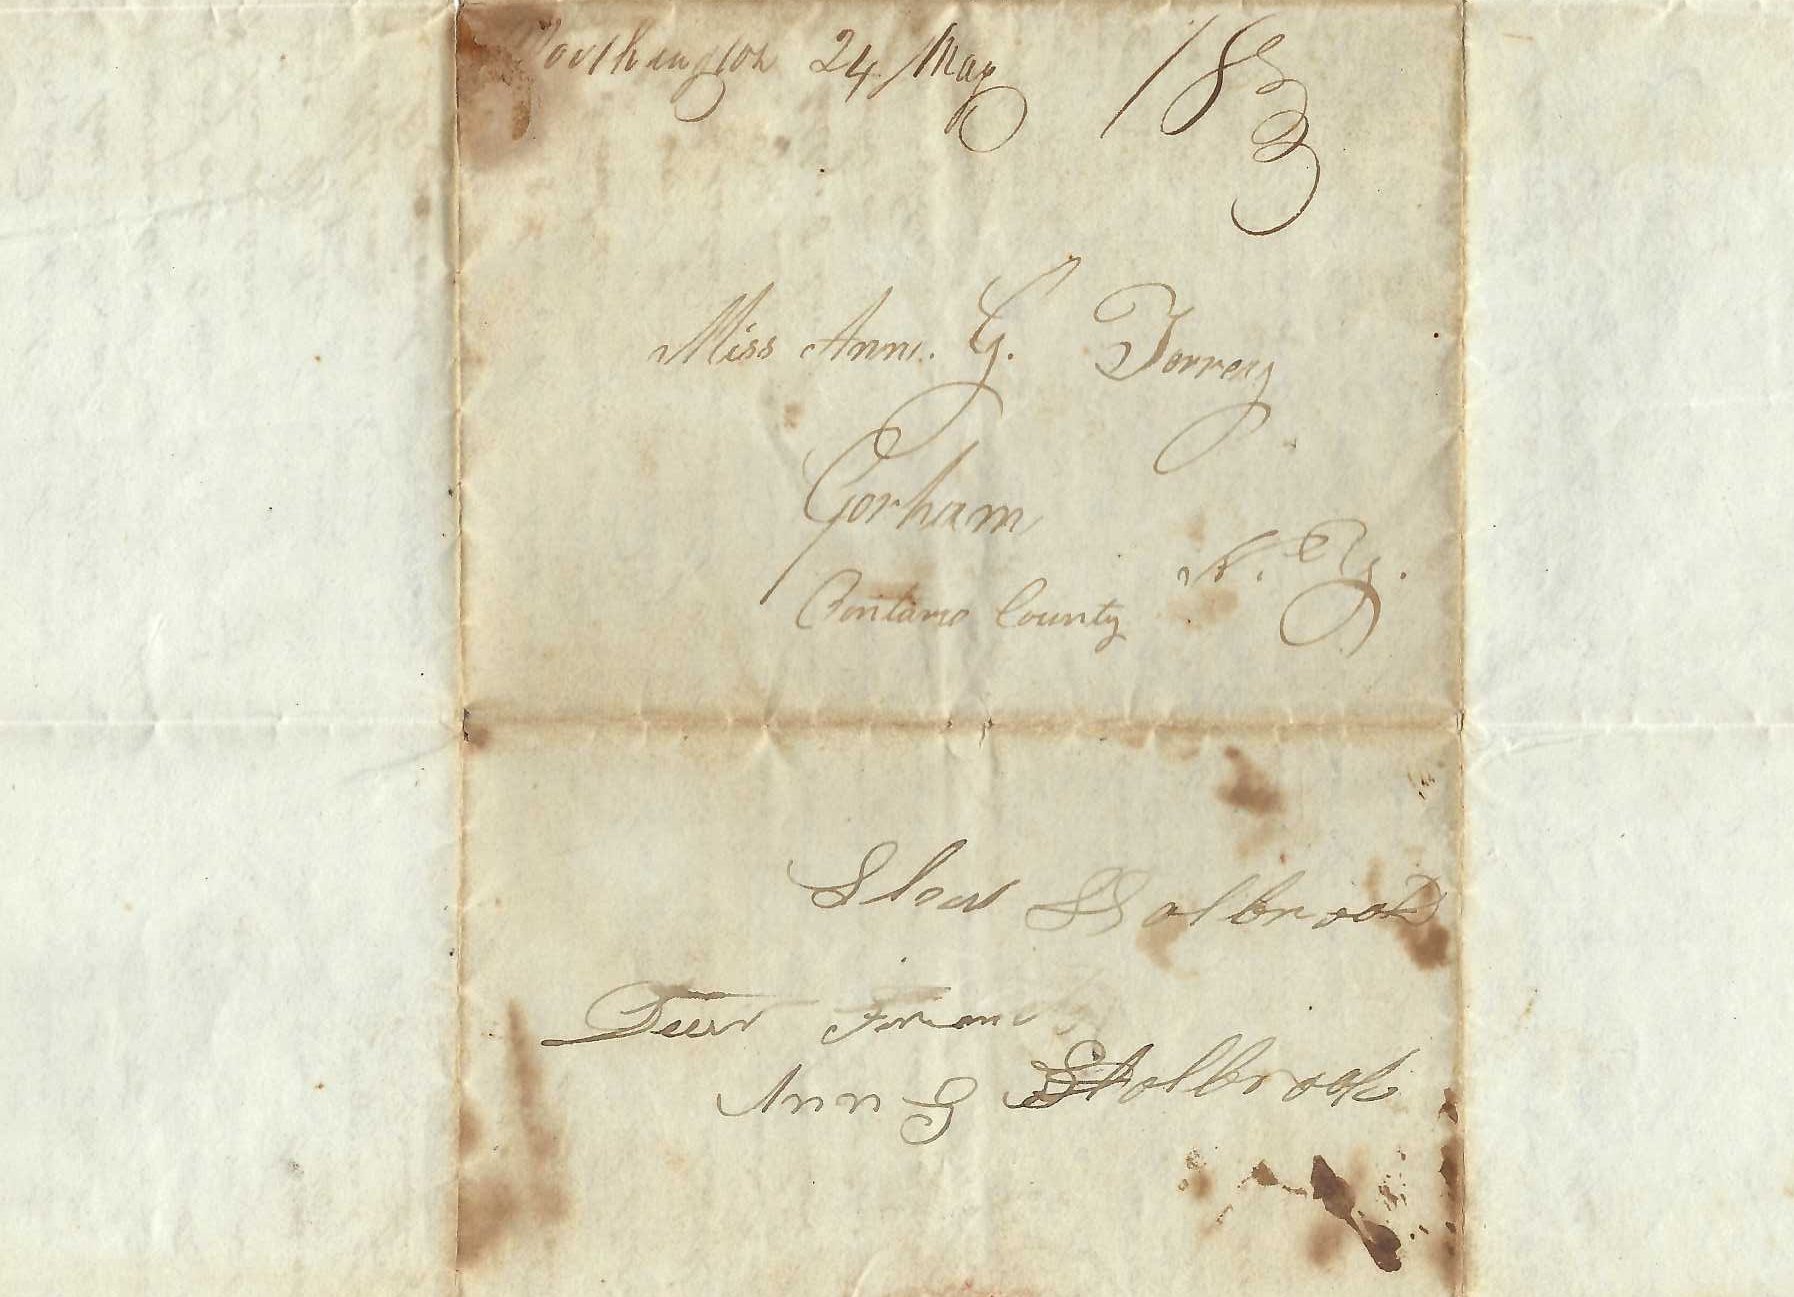 Worthington 24 May
Miss Ann. G. Torrey
Gorham
N. Y.
Ontario County
Holbrook
Dear Friend
Ann G Holbrook